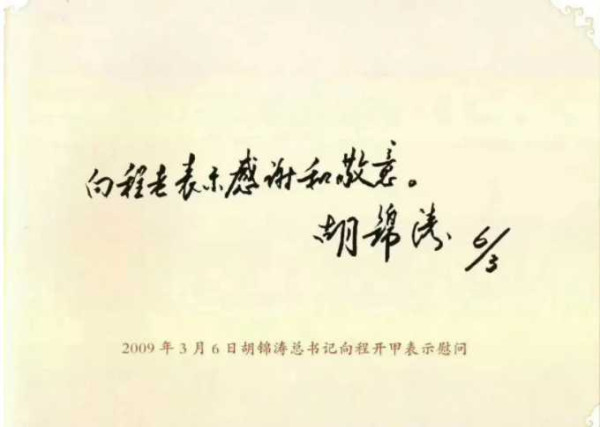 向程老表示感谢和敬意。
胡锦涛 6/3
2009年3月6日胡锦涛总书记向程开甲表示慰问